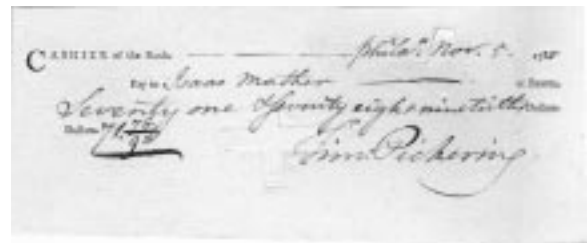 CASHIER of the Bank, Philaᵃ. Nov. 5.
Pay to Isaac Mather or Bearer,
Seventy one & seventy eight ninetieths Dollars
Dollars 71.78/90
Tim. Pickering